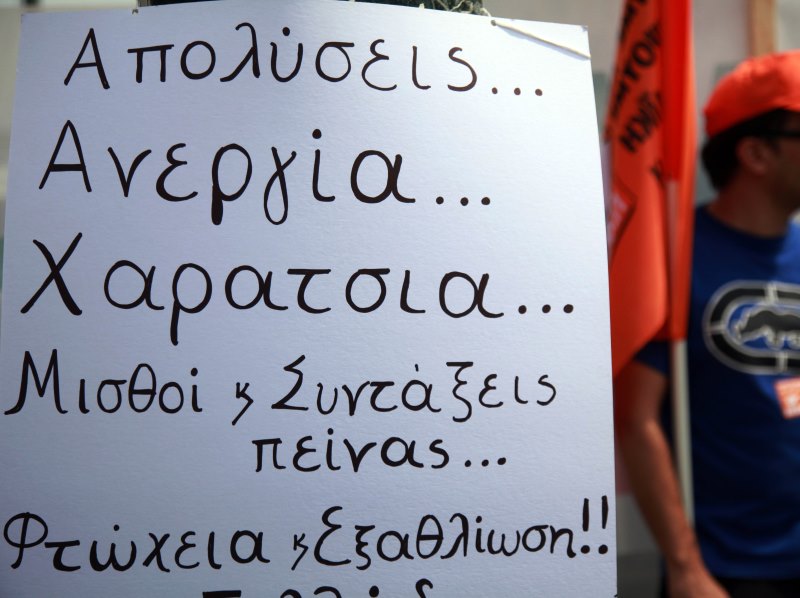 Απολύσεις...
Ανεργία...
Χαρατσια...
Μισθοί ϗ Συντάξεις
πείνας...
Φτώχεια ϗ Εξαθλίωση!!